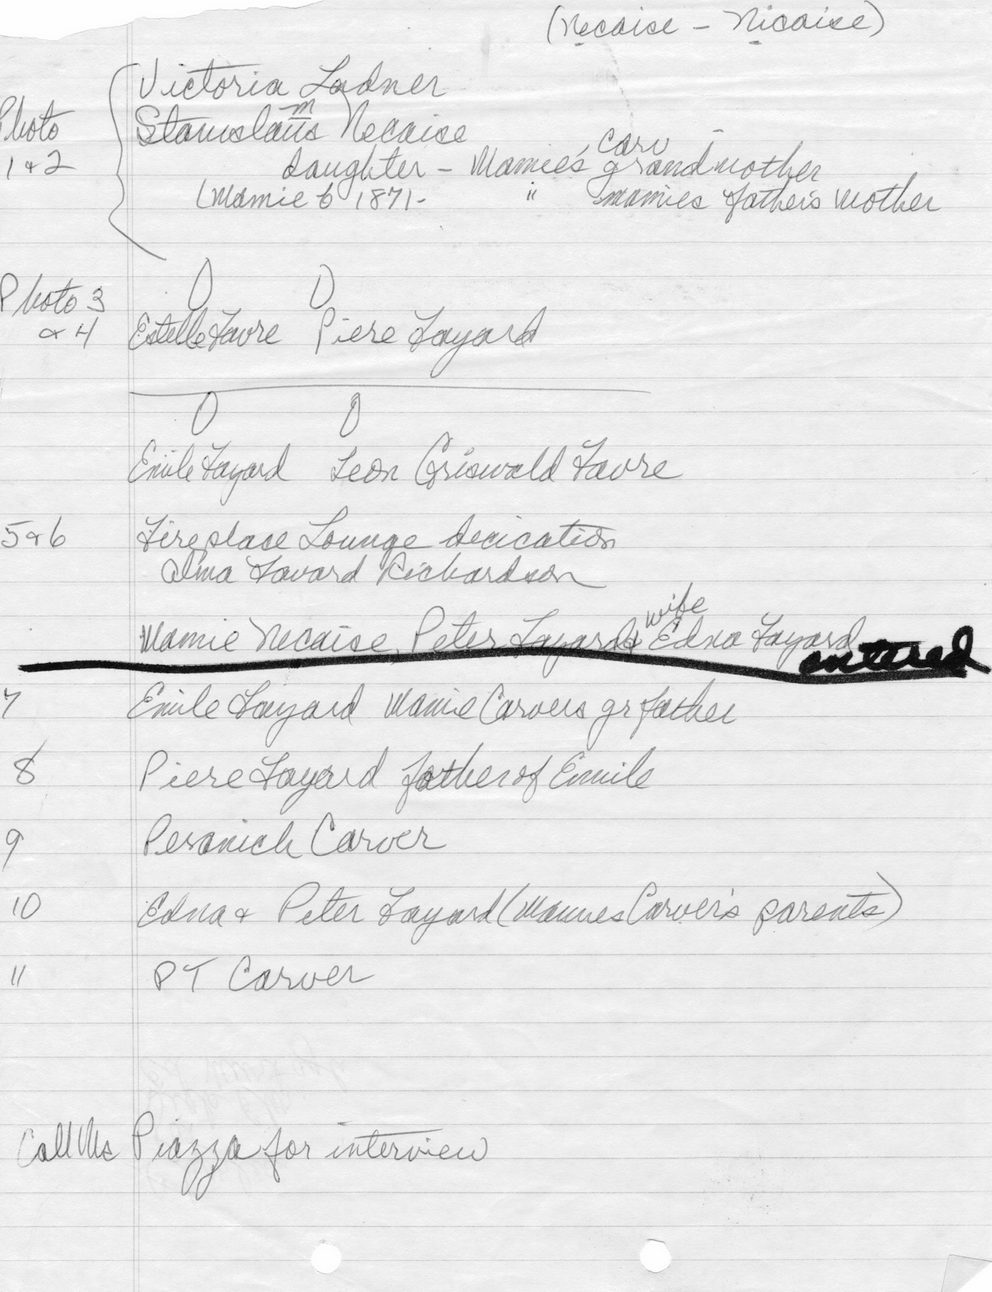 (Necaise - Nicaise)
Photo 1 & 2
Victoria Ladner
Stanislaus Necaise
m
carv
daughter - Mamie's grandmother
(Mamie b 1871- " mamies father's Mother
Photo 3 & 4
Estelle Favre Piere Fayard
Emile Fayard Leon Griswald Favre
5 & 6 Fireplace Lounge decication
Alma Favard Richardson
wife
Mamie Necaise, Peter Fayard Edna Fayard
entered
7 Emile Fayard Mamie Carvers gr father
8 Piere Fayard father of Emile
9 Carver
10 Edna & Peter Fayard (Mamies Carver's parents)
11 PT Carver
Call Ms Piazza for interview